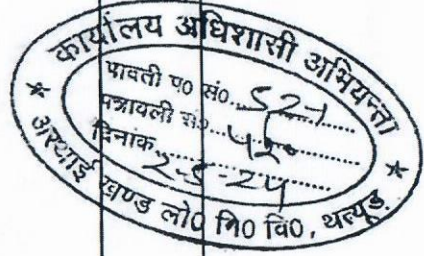 कार्यालय अधिशासी अभियन्ता
पावती प० सं०.....521.....
पत्रावली सं०.....
दिनांक.....2-5-24.....
* अस्थाई खण्ड लो० नि० वि०, थत्यूड़ *